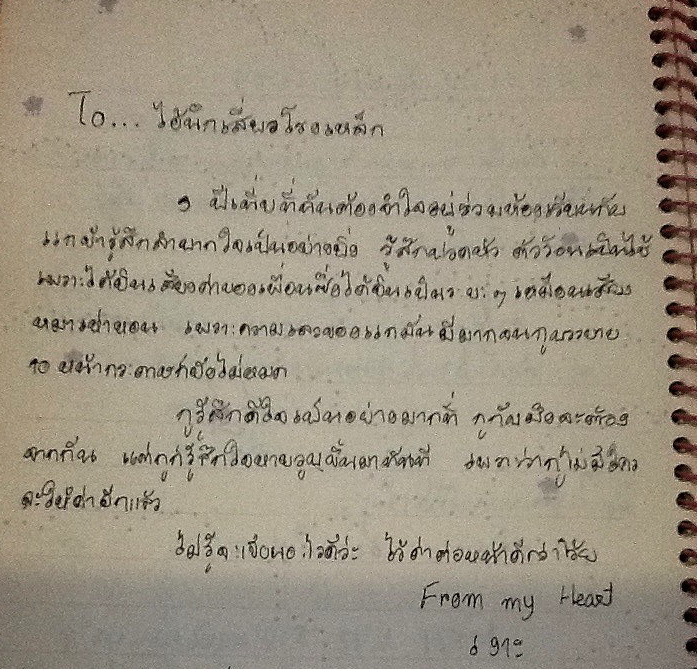 To... ไอ้นึกเสี่ยวโรงเหล็ก
1 ปีเกี่ยที่กันต้องจำใจอยู่ร่วมห้องเรียนกับ
แกข้ารู้สึกลำบากใจเป็นอย่างยิ่ง รู้สึกปวดหัว ตัวร้อนเป็นไข้
เพราะได้ยินเสียงด่าของเพื่อนซึ่งได้ยินเป็นระยะๆ เหมือนเสียง
หมาเห่าหอน เพราะความเลวของแกมันมีมากจนกูบรรยาย
10 หน้ากระดาษก็ยังไม่หมด
กูรู้สึกดีใจเป็นอย่างมากที่ กูกับมึงจะต้อง
จากกัน แต่กูก็รู้สึกใจหายวูบขึ้นมาทันที เพราะว่ากูไม่มีใคร
จะให้ด่าอีกแล้ว
ไม่รู้จะเขียนอะไรดีว่ะ ไว้ด่าต่อหน้าดีกว่าโว้ย
From my Heart